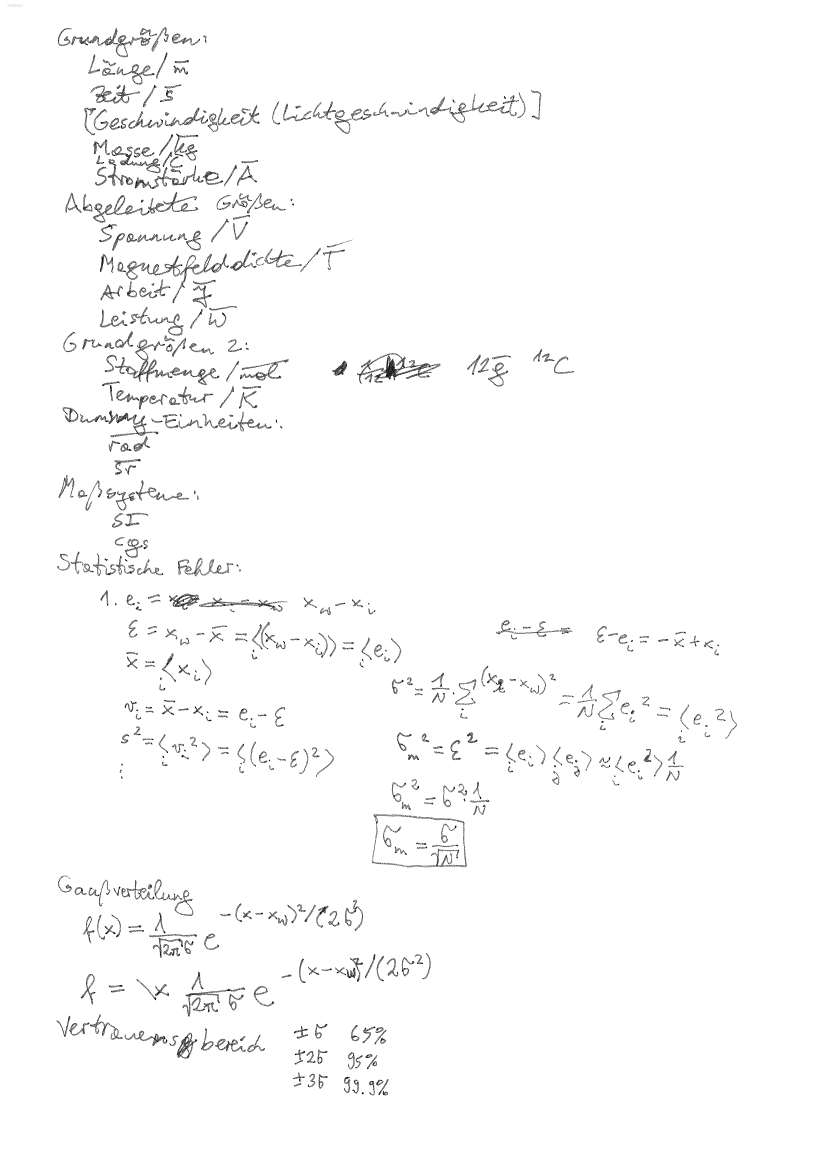 Grundgrößen:
Länge/m̅
Zeit/s̅
[Geschwindigkeit (Lichtgeschwindigkeit)]
Masse/k̅g̅
Ladung/C̅
Stromstärke/A̅
Abgeleitete Größen:
Spannung/V̅
Magnetfelddichte/T̅
Arbeit/J̅
Leistung/W̅
Grundgrößen 2:
Stoffmenge/m̅o̅l̅ 12g̅ ¹²C
Temperatur/K̅
Dummy-Einheiten:
r̅a̅d̅
s̅r̅
Maßsysteme:
SI
cgs
Statistische Fehler:
1. eᵢ = x_w − xᵢ
ε = x_w − x̄ = ⟨(x_w − xᵢ)⟩ᵢ = ⟨eᵢ⟩ᵢ
eᵢ − ε = ε − eᵢ = −x̄ + xᵢ
x̄ = ⟨xᵢ⟩ᵢ
σ² = 1/N · Σᵢ (xᵢ − x_w)² = 1/N Σᵢ eᵢ² = ⟨eᵢ²⟩ᵢ
vᵢ = x̄ − xᵢ = eᵢ − ε
s² = ⟨vᵢ²⟩ᵢ = ⟨(eᵢ − ε)²⟩ᵢ
⋮
σ_m² = ε² = ⟨eᵢ⟩ᵢ ⟨eⱼ⟩ⱼ ≈ ⟨eᵢ²⟩ᵢ 1/N
σ_m² = σ² · 1/N
σ_m = σ/√N
Gaußverteilung
f(x) = 1/(√2π σ) e^−(x−x_w)²/(2σ²)
f = \x 1/(√2π σ) e^−(x−x_w)²/(2σ²)
Vertrauensbereich ±σ 65%
±2σ 95%
±3σ 99.9%